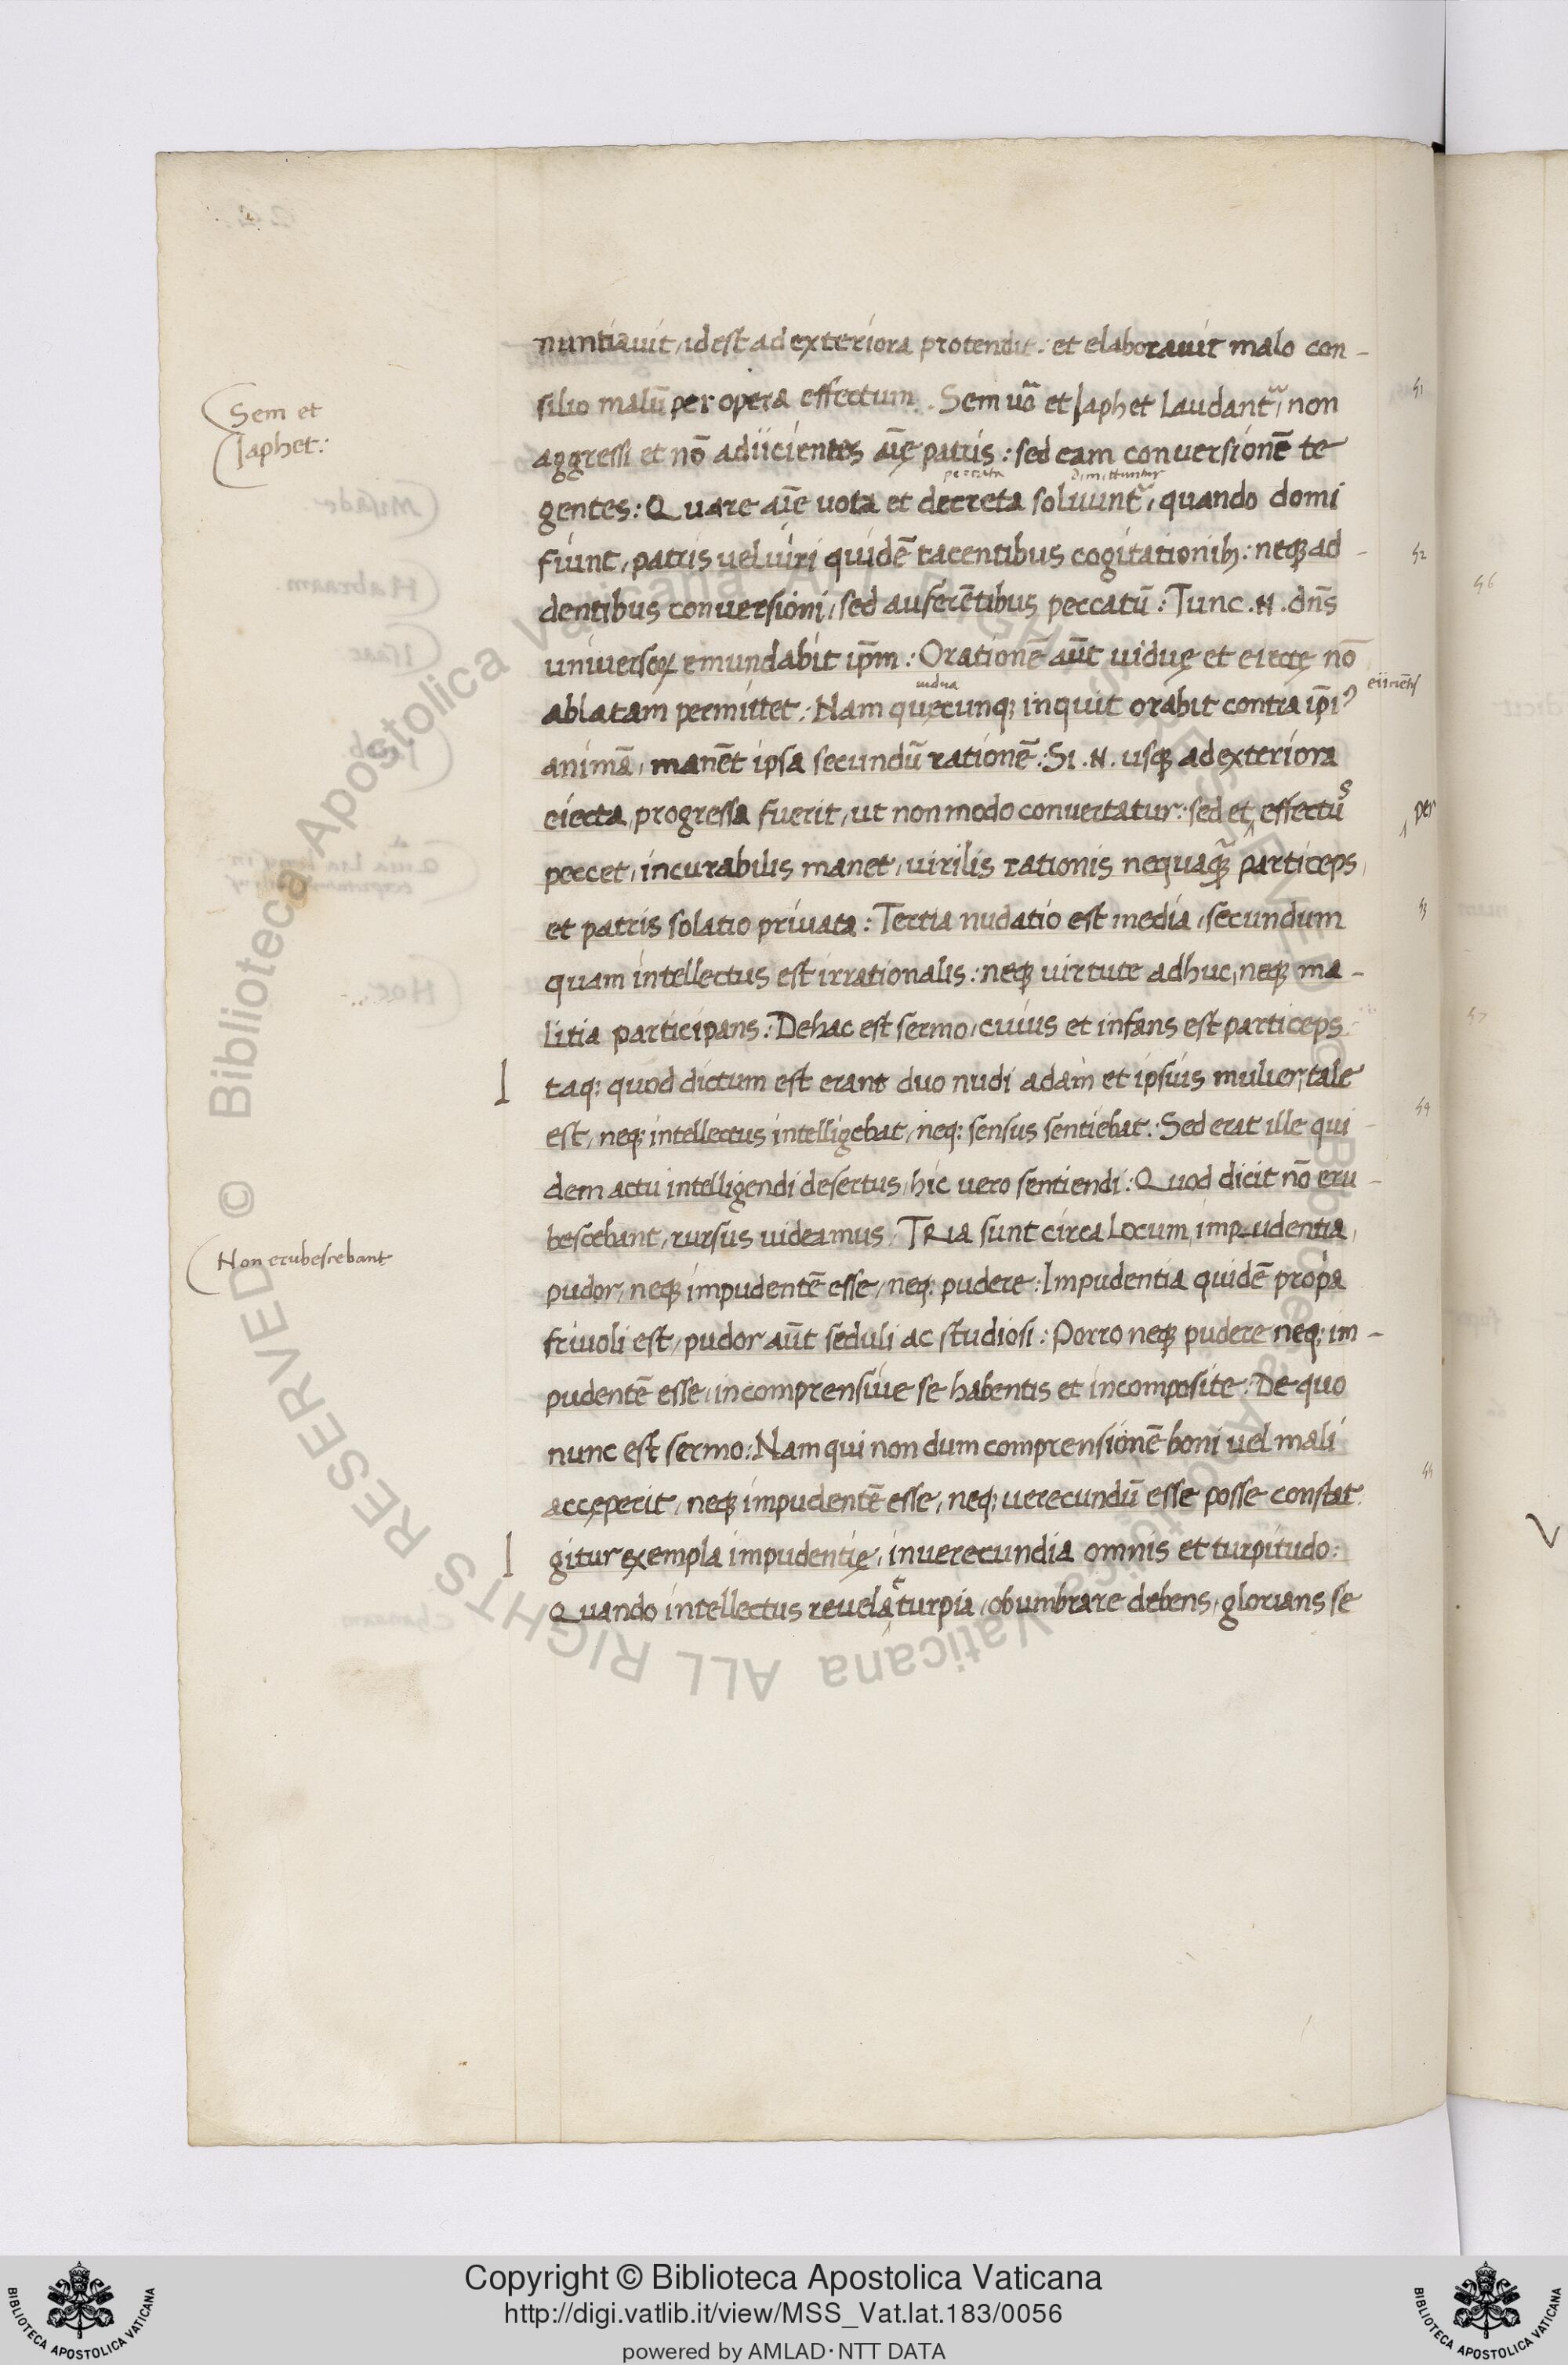 nuntiauit, idest ad exteriora protendit: et elaborauit malo con-
silio malū per opera effectum. Sem uō et Iaphet laudantᷣ, non
Sem et
Iaphet:
aggressi et nō adiicientes aīe patris: sed eam conuersionē te
peccata dimittuntur
gentes: Quare aīe uota et decreta soluuntᷣ, quando domi
fiunt, patris uel uiri quidē tacentibus cogitationib;: neq; ad-
dentibus conuersioni, sed auferētibus peccatū: Tunc .N. dn̄s
uniuersoꝝ emundabit ip̄m: Orationē aūt uidue et eiecte nō
uidua
eiiciētis
ablatam permittet: Nam quecunq; inquit orabit contra ip̄i⁹
animā, manēt ipsa secundū rationē: Si .N. usq; ad exteriora
eiecta, progressa fuerit, ut non modo conuertatur: sed et, effectūs
per
peccet, incurabilis manet, uirilis rationis nequaq̄ particeps,
et patris solatio priuata: Tertia nudatio est media, secundum
quam intellectus est irrationalis: neq; uirtute adhuc, neq; ma-
litia participans: De hac est sermo, cuius et infans est particeps
I taq: quod dictum est erant duo nudi adam et ipsius mulier, tale
est, neq: intellectus intelligebat, neq: sensus sentiebat: Sed erat ille qui-
dem actu intelligendi desertus, hic uero sentiendi: Quod dicit nō eru-
bescebant, rursus uideamus. TRia sunt circa locum, impudentia,
Non erubescebant
pudor, neq; impudentē esse, neq: pudere: Impudentia quidē prop̱a
friuoli est, pudor aūt seduli ac studiosi: Porro neq; pudere neq; im-
pudentē esse, incomprensiue se habentis et incomposite: De quo
nunc est sermo: Nam qui non dum comprensionē boni uel mali
acceperit, neq; impudentē esse, neq; uerecundū esse posse constat:
I gitur exempla impudentie, inuerecundia omnis et turpitudo:
Quando intellectus reuelat turpia, obumbrare debens, glorians se
51
52
53
54
55
56
57
Copyright © Biblioteca Apostolica Vaticana
http://digi.vatlib.it/view/MSS_Vat.lat.183/0056
powered by AMLAD·NTT DATA
BIBLIOTECA APOSTOLICA VATICANA
BIBLIOTECA APOSTOLICA VATICANA
© Biblioteca Apostolica Vaticana ALL RIGHTS RESERVED